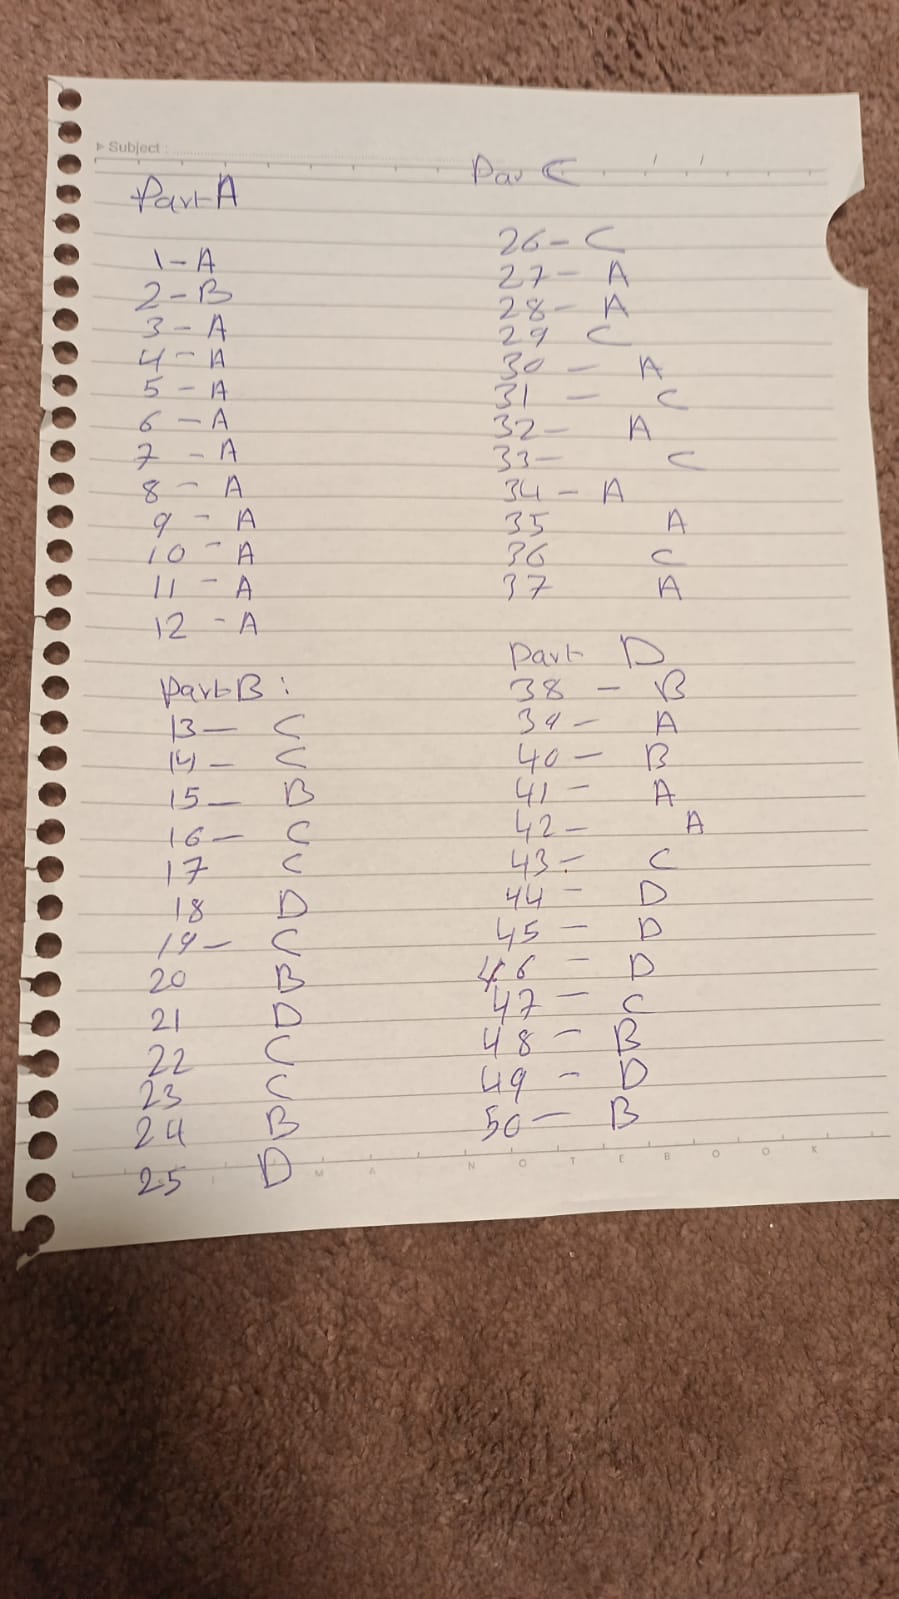 Subject :
Part A
1 - A
2 - B
3 - A
4 - A
5 - A
6 - A
7 - A
8 - A
9 - A
10 - A
11 - A
12 - A
Part B :
13 - C
14 - C
15 - B
16 - C
17 C
18 D
19 - C
20 B
21 D
22 C
23 C
24 B
25 D
Par C
26 - C
27 - A
28 - A
29 C
30 - A
31 - C
32 - A
33 - C
34 - A
35 A
36 C
37 A
Part D
38 - B
39 - A
40 - B
41 - A
42 - A
43 - C
44 - D
45 - D
46 - D
47 - C
48 - B
49 - D
50 - B
NOTEBOOK